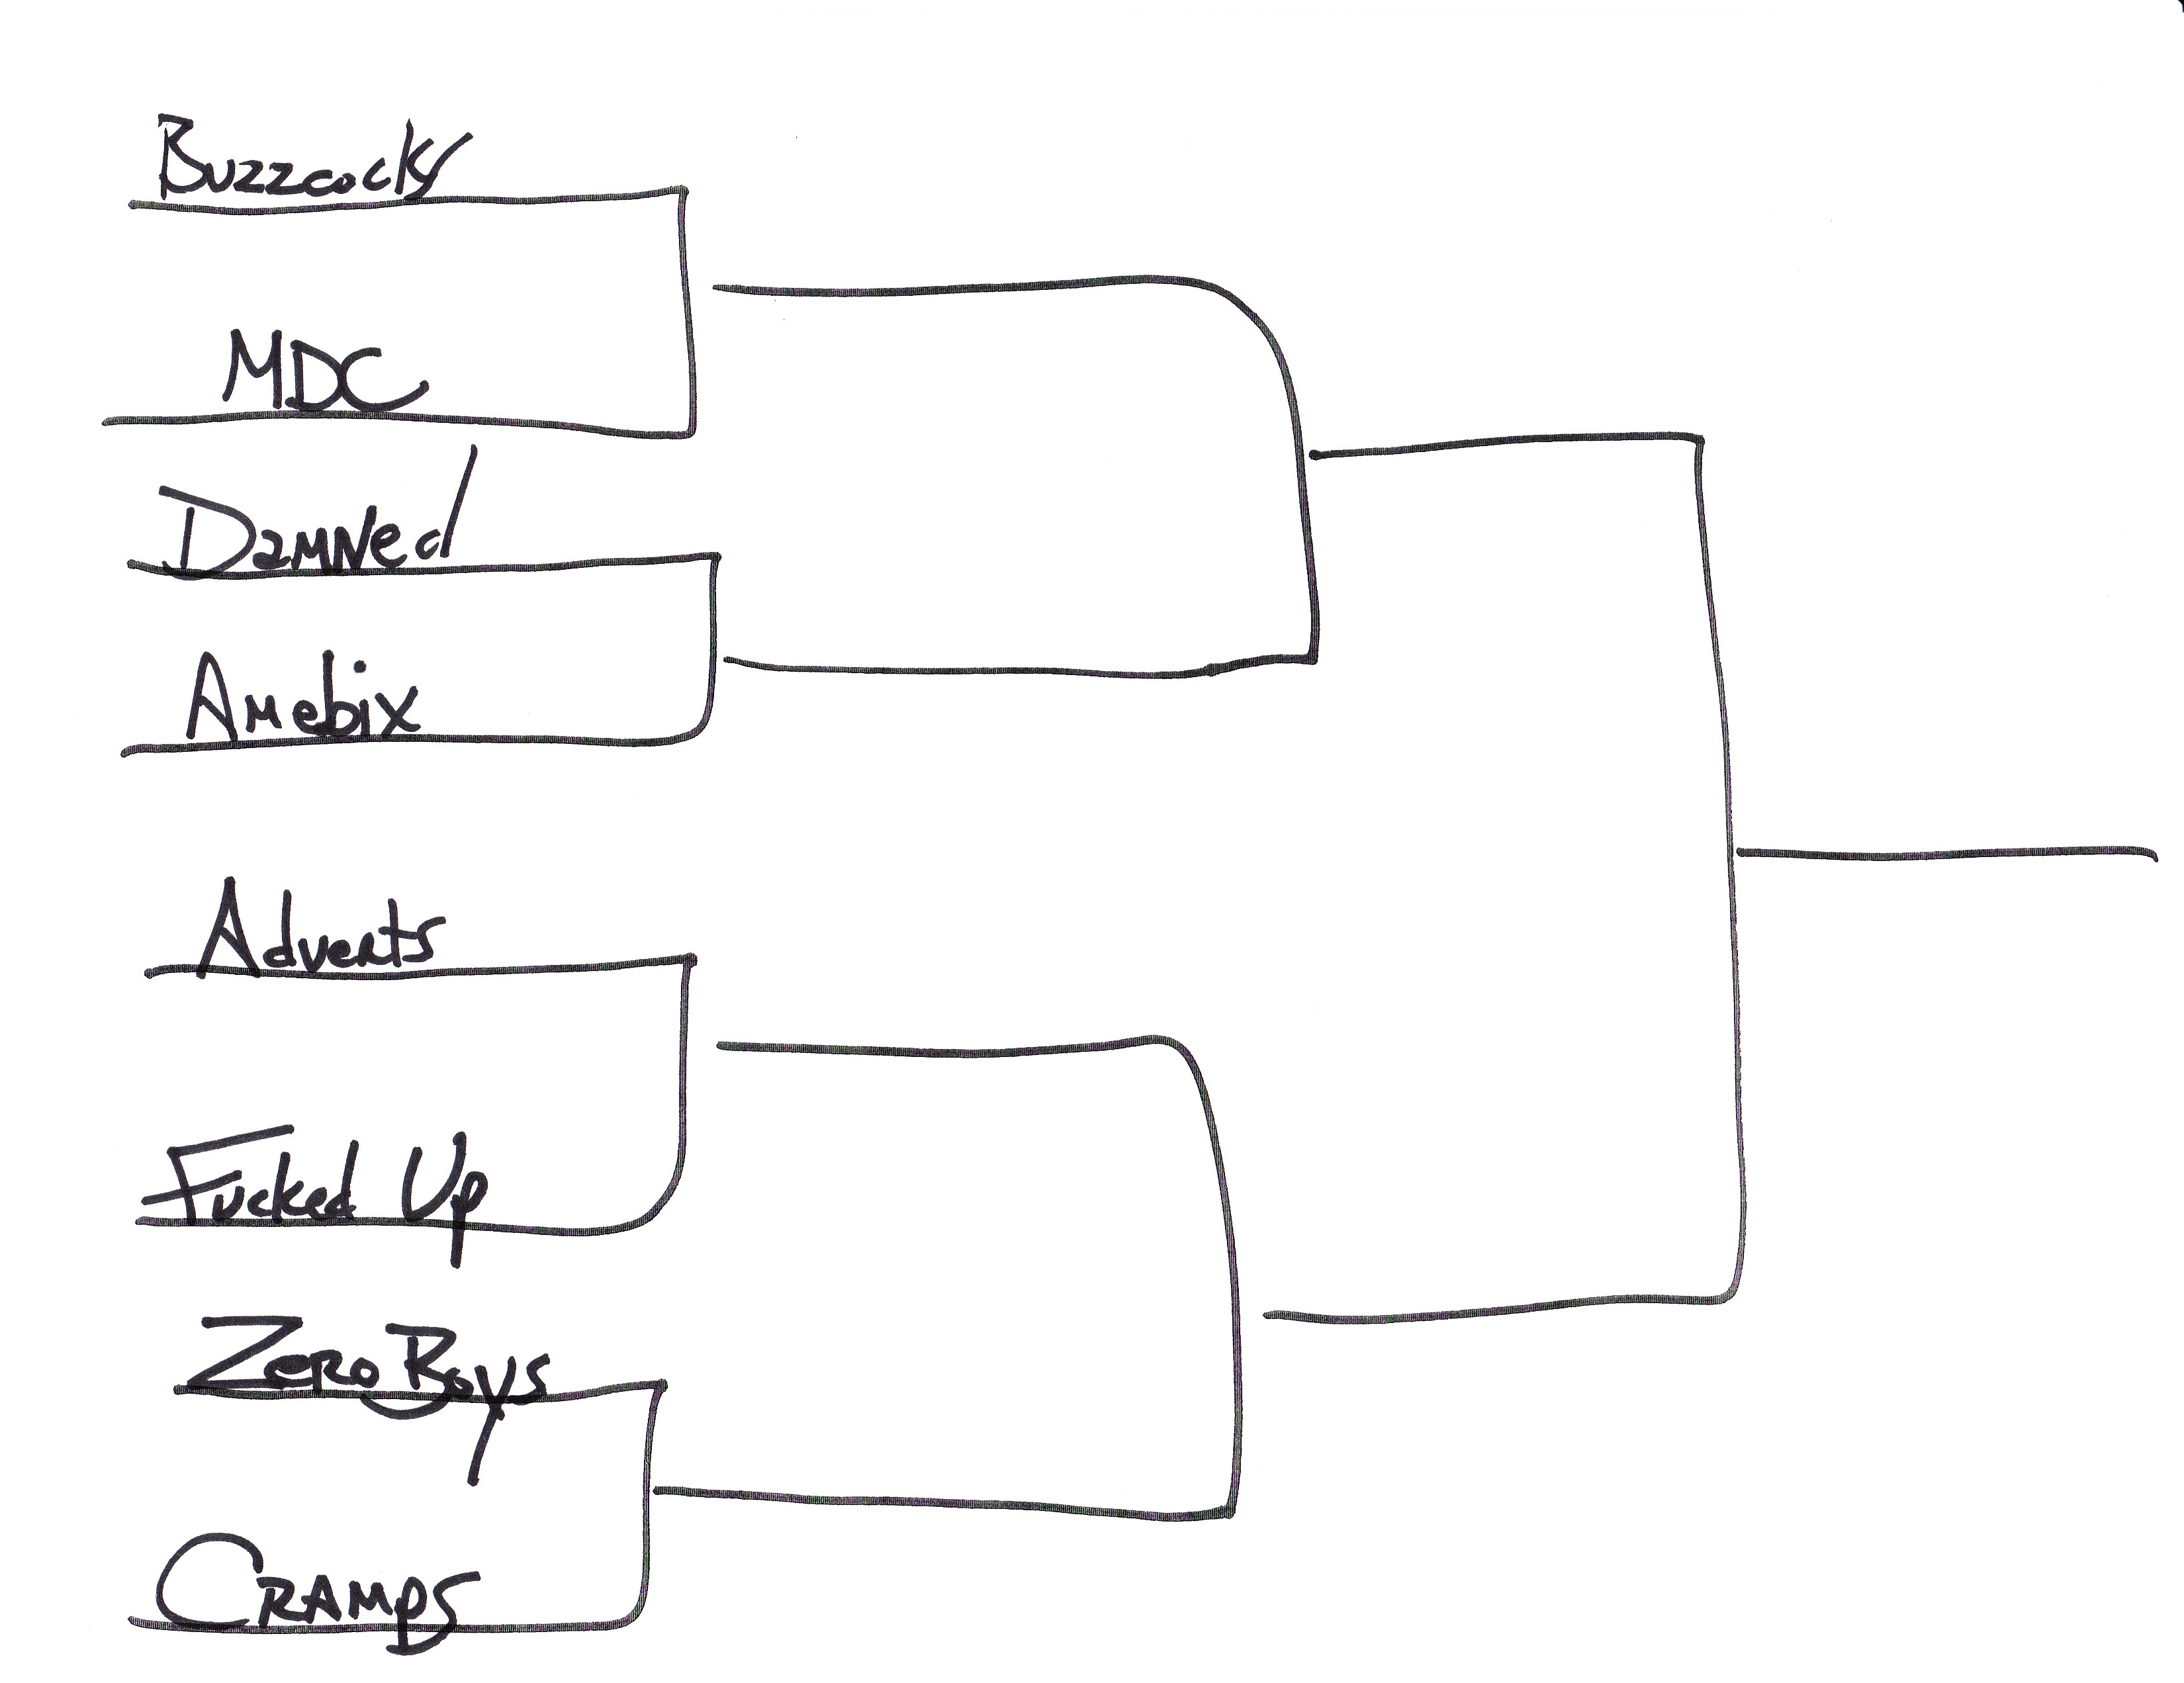 Buzzcocks
MDC
Damned
Amebix
Adverts
Fucked Up
Zero Boys
Cramps